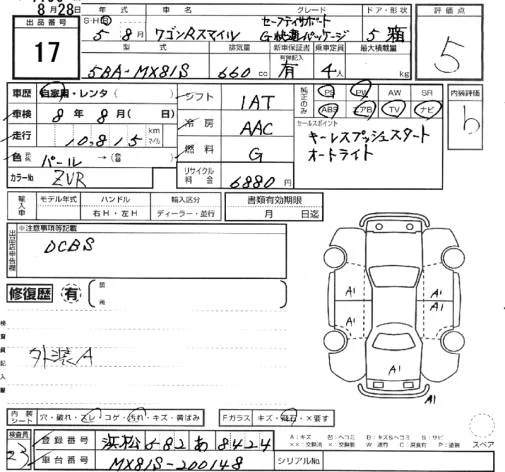 8月28日
出品番号
17
S・H・R
年式
5年 8月
車名
ワゴンRスマイル
グレード
セーフティサポート
G快適パッケージ
ドア・形状
5 箱
評価点
5
型式
5BA-MX81S
排気量
660 cc
新車保証書
有
乗車定員
4人
最大積載量
kg
車歴 自家用・レンタ( )
車検 8年 8月( 日)
走行 10,815 km マイル
色 パール →( 色)
カラーNo ZVR
シフト 1AT
冷房 AAC
燃料 G
リサイクル料金 6880円
純正のみ
PS PW AW SR
ABS エアB TV ナビ
内装評価
b
セールスポイント
キーレスプッシュスタート
オートライト
輸入車
モデル年式
ハンドル
右H・左H
輸入区分
ディーラー・並行
書類有効期限
月 日迄
※注意事項等記載
DCBS
修復歴 有
箇所
検査員記入欄
外装A
A1
A1
A1
A1
A1
内装シート
穴・破れ・スレ・コゲ・汚れ・キズ・黄ばみ
Fガラス
キズ・飛石・×要す
検査員
23
登録番号 浜松582あ8424
車台番号 MX81S-200148
シリアルNo
A:キズ
スペア